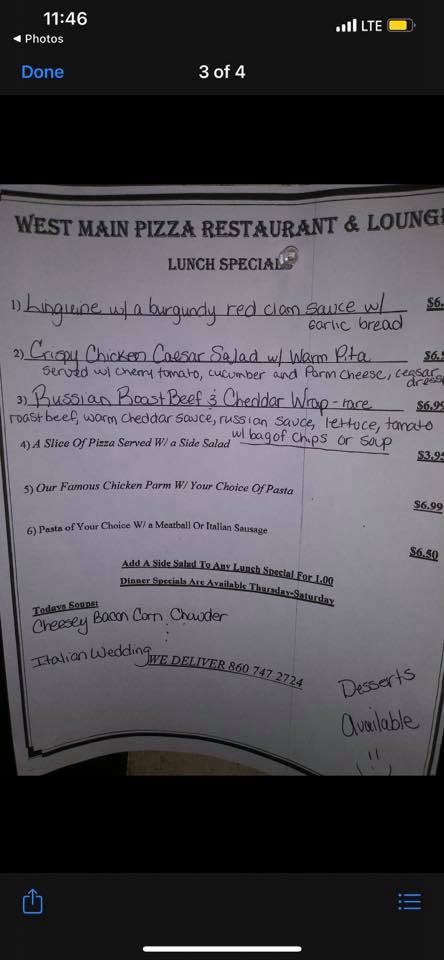 11:46
LTE
◀ Photos
Done
3 of 4
WEST MAIN PIZZA RESTAURANT & LOUNG
LUNCH SPECIALS
1) Linguine w/ a burgundy red clam sauce w/ $6.
garlic bread
2) Crispy Chicken Caesar Salad w/ Warm Pita $6.
served w/ cherry tomato, cucumber and Parm cheese, ceasar
dress
3) Russian Roast Beef & Cheddar Wrap - rare $6.99
roast beef, warm cheddar sauce, russian sauce, lettuce, tomato
w/ bag of chips or soup
4) A Slice Of Pizza Served W/ a Side Salad $3.95
5) Our Famous Chicken Parm W/ Your Choice Of Pasta $6.99
6) Pasta of Your Choice W/ a Meatball Or Italian Sausage $6.50
Add A Side Salad To Any Lunch Special For 1.00
Dinner Specials Are Available Thursday-Saturday
Todays Soups:
Cheesey Bacon Corn Chowder
Italian Wedding
WE DELIVER 860 747 2724
Desserts
Available
!!